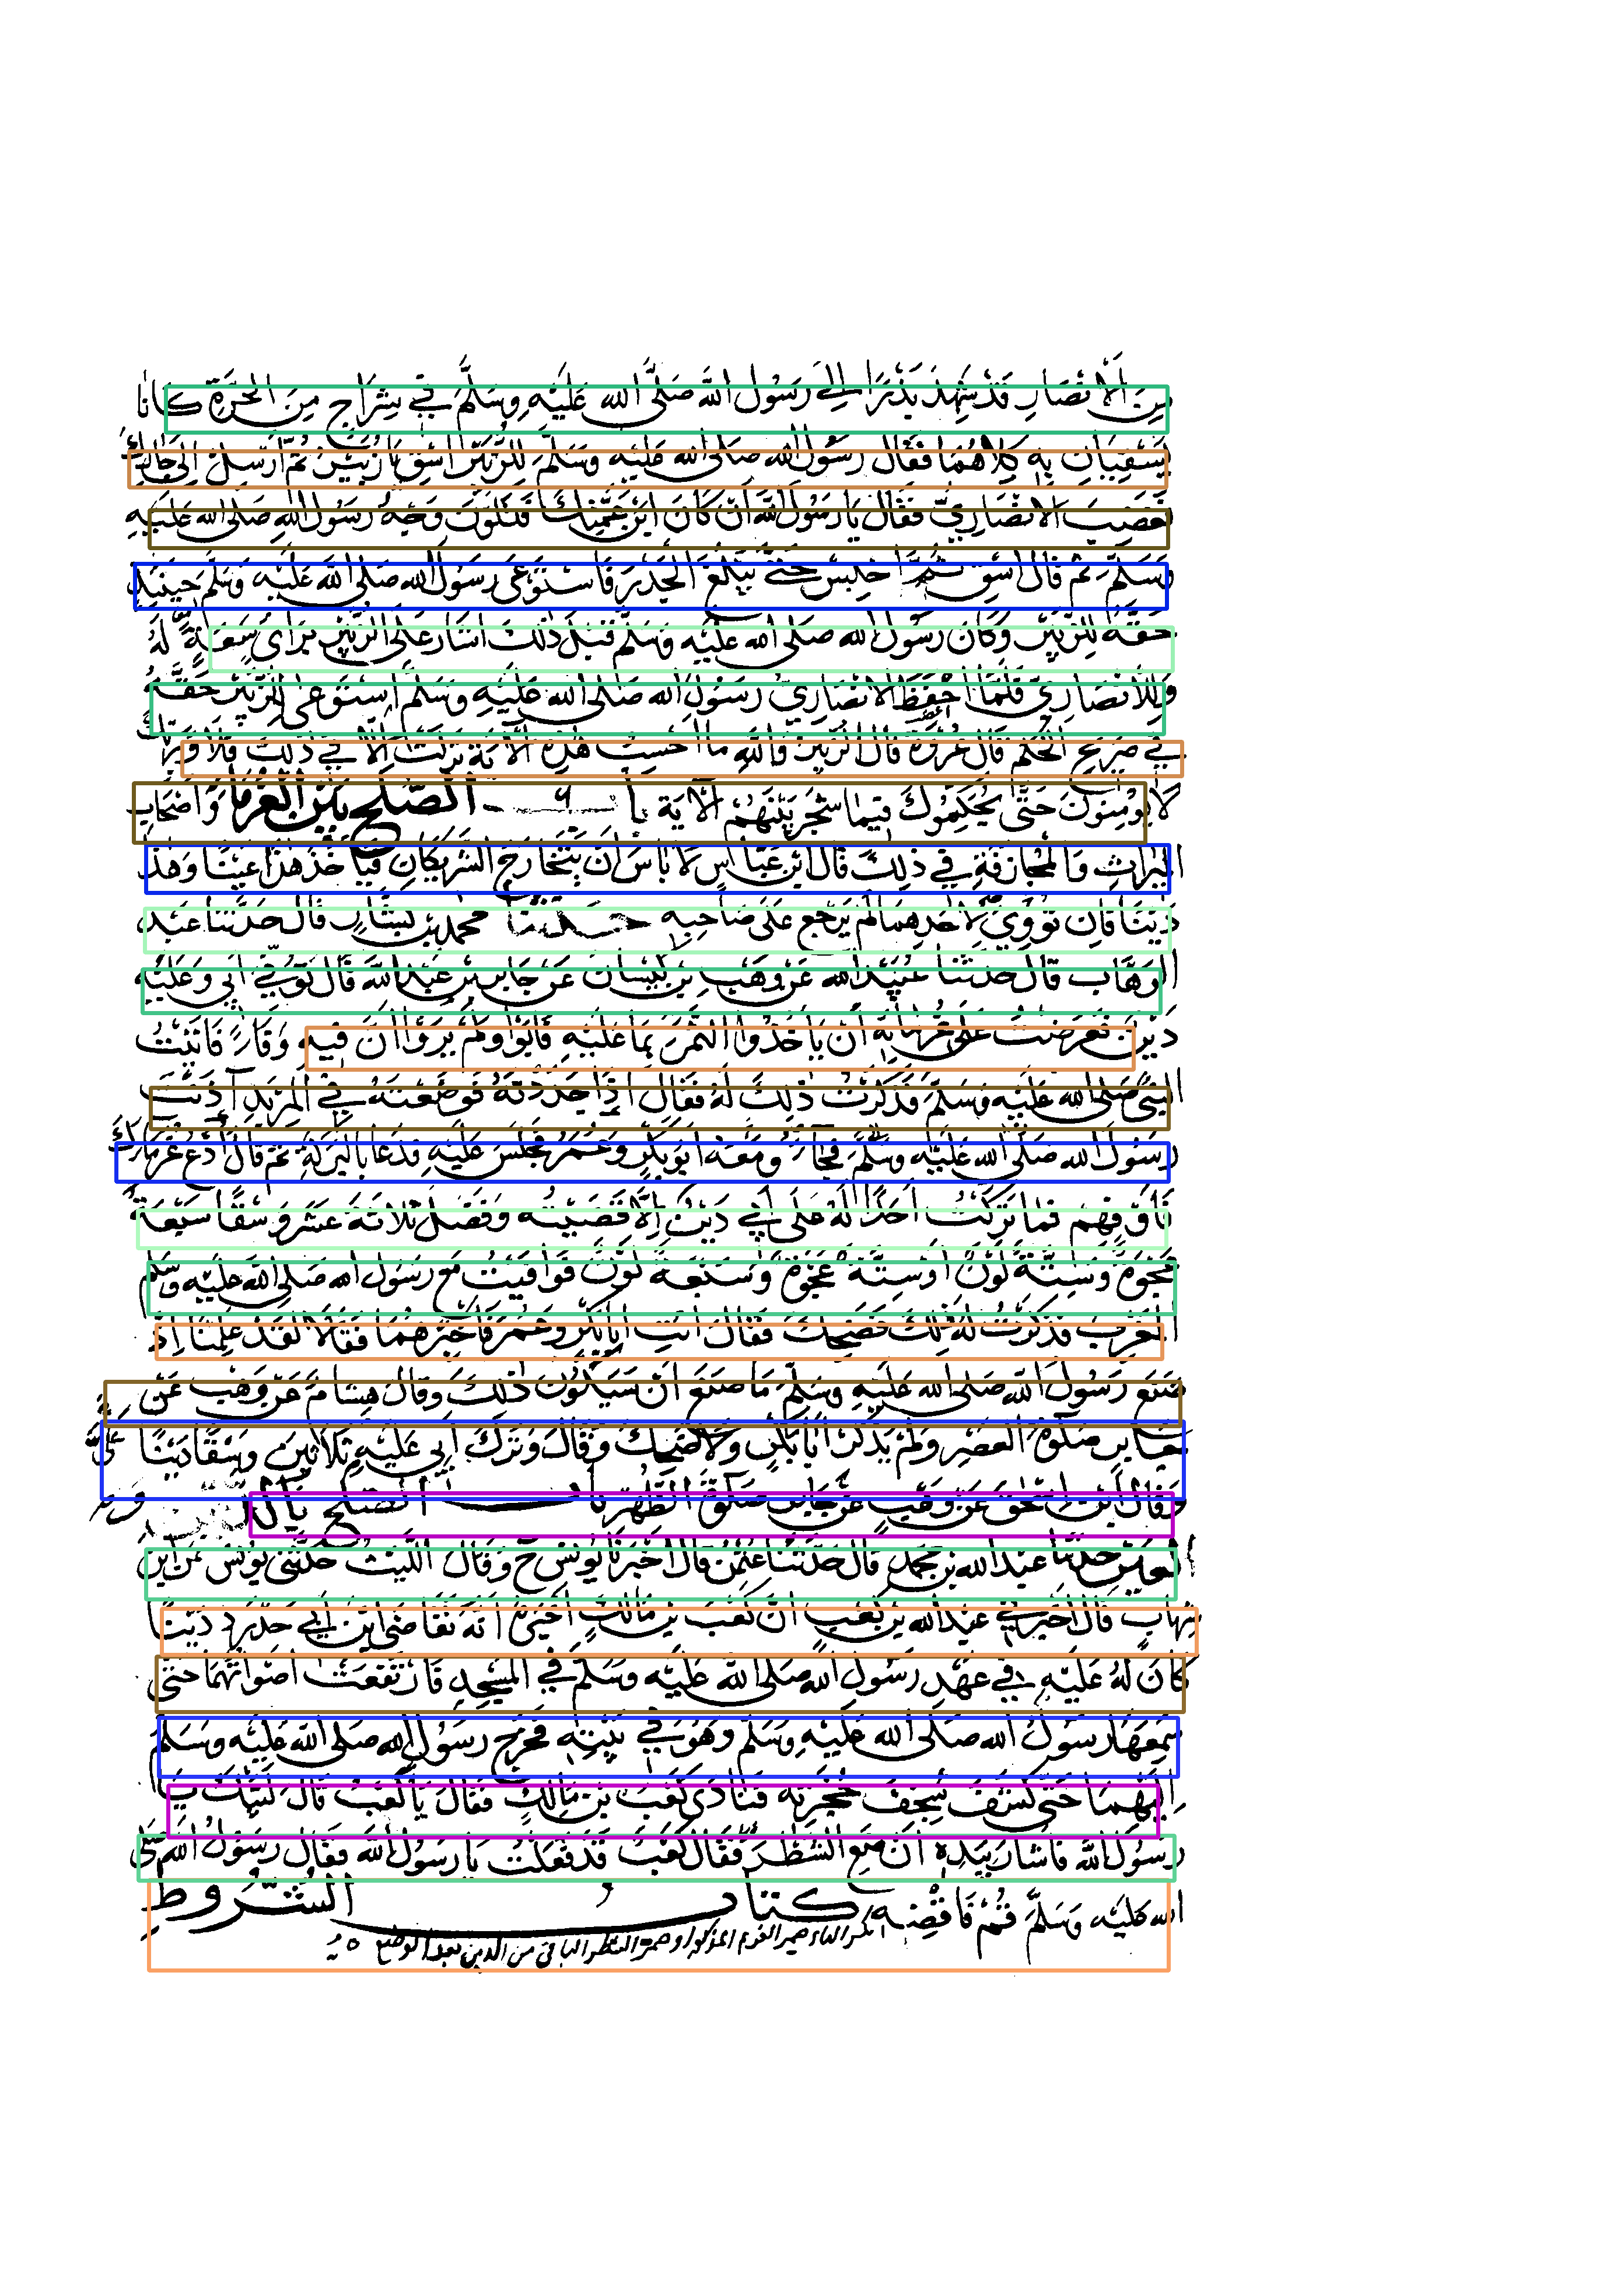 مِنَ الْاَنْصَارِ قَدْ شَهِدَ بَدْرًا اِلٰى رَسُولِ اللّٰهِ صَلَّى اللّٰه عَلَيْهِ وَسَلَّمَ فِي شِرَاجٍ مِنَ الْحَرَّةِ كَانَا
يَسْقِيَانِ بِهِ كِلَاهُمَا فَقَالَ رَسُولُ اللّٰه صَلى اللّٰه عَلَيْهِ وَسَلَّمَ لِلزُّبَيْرِ اسْقِ يَا زُبَيْرُ ثُمَّ اَرْسِلْ اِلٰى جَارِكَ
فَغَضِبَ الْاَنْصَارِيُّ فَقَالَ يَا رَسُولَ اللّٰهِ اَنْ كَانَ ابْنَ عَمَّتِكَ فَتَلَوَّنَ وَجْهُ رَسُولِ اللّٰهِ صَلى اللّٰه عَلَيْهِ
وَسَلَّمَ ثُمَّ قَالَ اسْقِ ثُمَّ احْبِسْ حَتّٰى يَبْلُغَ الْجَدْرَ فَاسْتَوْعٰى رَسُولُ اللّٰه صَلى اللّٰهُ عَلَيْهِ وَسَلَّمَ حِينَئِذٍ
حَقَّهُ لِلزُّبَيْرِ وَكَانَ رَسُولُ اللّٰه صَلى اللّٰه عَلَيْهِ وَسَلَّمَ قَبْلَ ذٰلِكَ اَشَارَ عَلَى الزُّبَيْرِ بِرَاْيٍ سَعَةٍ لَهُ
وَلِلْاَنْصَارِيِّ فَلَمَّا اَحْفَظَ الْاَنْصَارِيُّ رَسُولَ اللّٰه صَلى اللّٰه عَلَيْهِ وَسَلَّمَ اسْتَوْعٰى لِلزُّبَيْرِ حَقَّهُ
فِي صَرِيحِ الْحُكْمِ قَالَ عُرْوَةُ قَالَ الزُّبَيْرُ وَاللّٰهِ مَا اَحْسِبُ هٰذِهِ الْاٰيَةَ نَزَلَتْ اِلَّا فِي ذٰلِكَ فَلَا وَرَبِّكَ
لَا يُوْمِنُونَ حَتّٰى يُحَكِّمُوكَ فِيمَا شَجَرَ بَيْنَهُمْ الْاٰيَةَ بَاب الصُّلْحِ بَيْنَ الْغُرَمَاءِ وَاَصْحَابِ
الْمِيرَاثِ وَالْمُجَازَفَةِ فِي ذٰلِكَ قَالَ ابْنُ عَبَّاسٍ لَا بَاْسَ اَنْ يَتَخَارَجَ الشَّرِيكَانِ فَيَاْخُذَ هٰذَا عَيْنًا وَهٰذَا
دَيْنًا فَاِنْ تَوِيَ لِاَحَدِهِمَا لَمْ يَرْجِعْ عَلَى صَاحِبِهِ حَدَّثَنَا مُحَمَّدُ بْنُ بَشَّارٍ قَالَ حَدَّثَنَا عَبْدُ
الْوَهَّابِ قَالَ حَدَّثَنَا عُبَيْدُ اللّٰه عَنْ وَهْبِ بْنِ كَيْسَانَ عَنْ جَابِرِ بْنِ عَبْدِ اللّٰهِ قَالَ تُوُفِّيَ اَبِي وَعَلَيْهِ
دَيْنٌ فَعَرَضْتُ عَلَى غُرَمَائِهِ اَنْ يَاْخُذُوا التَّمْرَ بِمَا عَلَيْهِ فَاَبَوْا وَلَمْ يَرَوْا اَنَّ فِيهِ وَفَاءً فَاَتَيْتُ
النَّبِيَّ صَلى اللّٰه عَلَيْهِ وَسَلَّمَ فَذَكَرْتُ ذٰلِكَ لَهُ فَقَالَ اِذَا جَدَدْتَهُ فَوَضَعْتَهُ فِي الْمِرْبَدِ اٰذَنْتَ
رَسُولَ اللّٰه صَلَّى اللّٰه عَلَيْهِ وَسَلَّمَ فَجَاءَ وَمَعَهُ اَبُو بَكْرٍ وَعُمَرُ فَجَلَسَ عَلَيْهِ فَدَعَا بِالْبَرَكَةِ ثُمَّ قَالَ اُدْعُ غُرَمَاءَكَ
فَاَوْفِهِمْ فَمَا تَرَكْتُ اَحَدًا لَهُ عَلَى اَبِي دَيْنٌ اِلَّا قَضَيْتُهُ وَفَضَلَ ثَلَاثَةَ عَشَرَ وَسْقًا سَبْعَةٌ
عَجْوَةٌ وَسِتَّةٌ لَوْنٌ اَوْ سِتَّةٌ عَجْوَةٌ وَسَبْعَةٌ لَوْنٌ فَوَافَيْتُ مَعَ رَسُولِ اللّٰه صَلى اللّٰهُ عَلَيْهِ وَسَلَّمَ
الْمَغْرِبَ فَذَكَرْتُ لَهُ ذٰلِكَ فَضَحِكَ فَقَالَ ائْتِ اَبَا بَكْرٍ وَعُمَرَ فَاَخْبِرْهُمَا فَقَالَا لَقَدْ عَلِمْنَا اِذْ
صَنَعَ رَسُولُ اللّٰهِ صَلى اللّٰه عَلَيْهِ وَسَلَّمَ مَا صَنَعَ اَنْ سَيَكُونُ ذٰلِكَ وَقَالَ هِشَامٌ عَنْ وَهْبٍ عَنْ
جَابِرٍ صَلٰوةَ الْعَصْرِ وَلَمْ يَذْكُرْ اَبَا بَكْرٍ وَلَا ضَحِكَ وَقَالَ وَتَرَكَ اَبِي عَلَيْهِ ثَلَاثِينَ وَسْقًا دَيْنًا
وَقَالَ ابْنُ اِسْحٰقَ عَنْ وَهْبٍ عَنْ جَابِرٍ صَلٰوةَ الظُّهْرِ بَاب الصُّلْحِ بِال
الْعَيْنِ حَدَّثَنَا عَبْدُ اللّٰه بْنُ مُحَمَّدٍ قَالَ حَدَّثَنَا عُثْمٰنُ قَالَ اَخْبَرَنَا يُونُسُ ح وَقَالَ اللَّيْثُ حَدَّثَنِي يُونُسُ عَنِ ابْنِ
شِهَابٍ قَالَ اَخْبَرَنِي عَبْدُ اللّٰه بْنُ كَعْبٍ اَنَّ كَعْبَ بْنَ مَالِكٍ اَخْبَرَهُ اَنَّهُ تَقَاضَى ابْنَ اَبِي حَدْرَدٍ دَيْنًا
كَانَ لَهُ عَلَيْهِ فِي عَهْدِ رَسُولِ اللّٰهِ صَلى اللّٰه عَلَيْهِ وَسَلَّمَ فِي الْمَسْجِدِ فَارْتَفَعَتْ اَصْوَاتُهُمَا حَتّٰى
سَمِعَهَا رَسُولُ اللّٰه صَلَّى اللّٰه عَلَيْهِ وَسَلَّمَ وَهُوَ فِي بَيْتِهِ فَخَرَجَ رَسُولُ اللّٰهِ صَلى اللّٰه عَلَيْهِ وَسَلَّمَ
اِلَيْهِمَا حَتّٰى كَشَفَ سِجْفَ حُجْرَتِهِ فَنَادٰى كَعْبَ بْنَ مَالِكٍ فَقَالَ يَا كَعْبُ قَالَ لَبَّيْكَ يَا
رَسُولَ اللّٰهِ فَاَشَارَ بِيَدِهِ اَنْ ضَعِ الشَّطْرَ فَقَالَ كَعْبٌ قَدْ فَعَلْتُ يَا رَسُولَ اللّٰهِ فَقَالَ رَسُولُ اللّٰهِ صَلَّى
اللّٰه عَلَيْهِ وَسَلَّمَ قُمْ فَاقْضِهِ كتاب الشُّرُوطِ
من الدين بعد الوضع